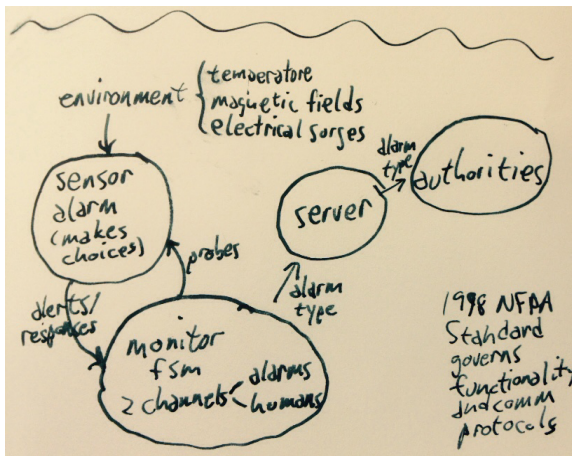 environment
temperature
magnetic fields
electrical surges
sensor
alarm
(makes
choices)
probes
alerts/
responses
monitor
fsm
2 channels
alarms
humans
alarm
type
server
alarm
type
authorities
1998 NFPA
Standard
governs
functionality
and comm
protocols